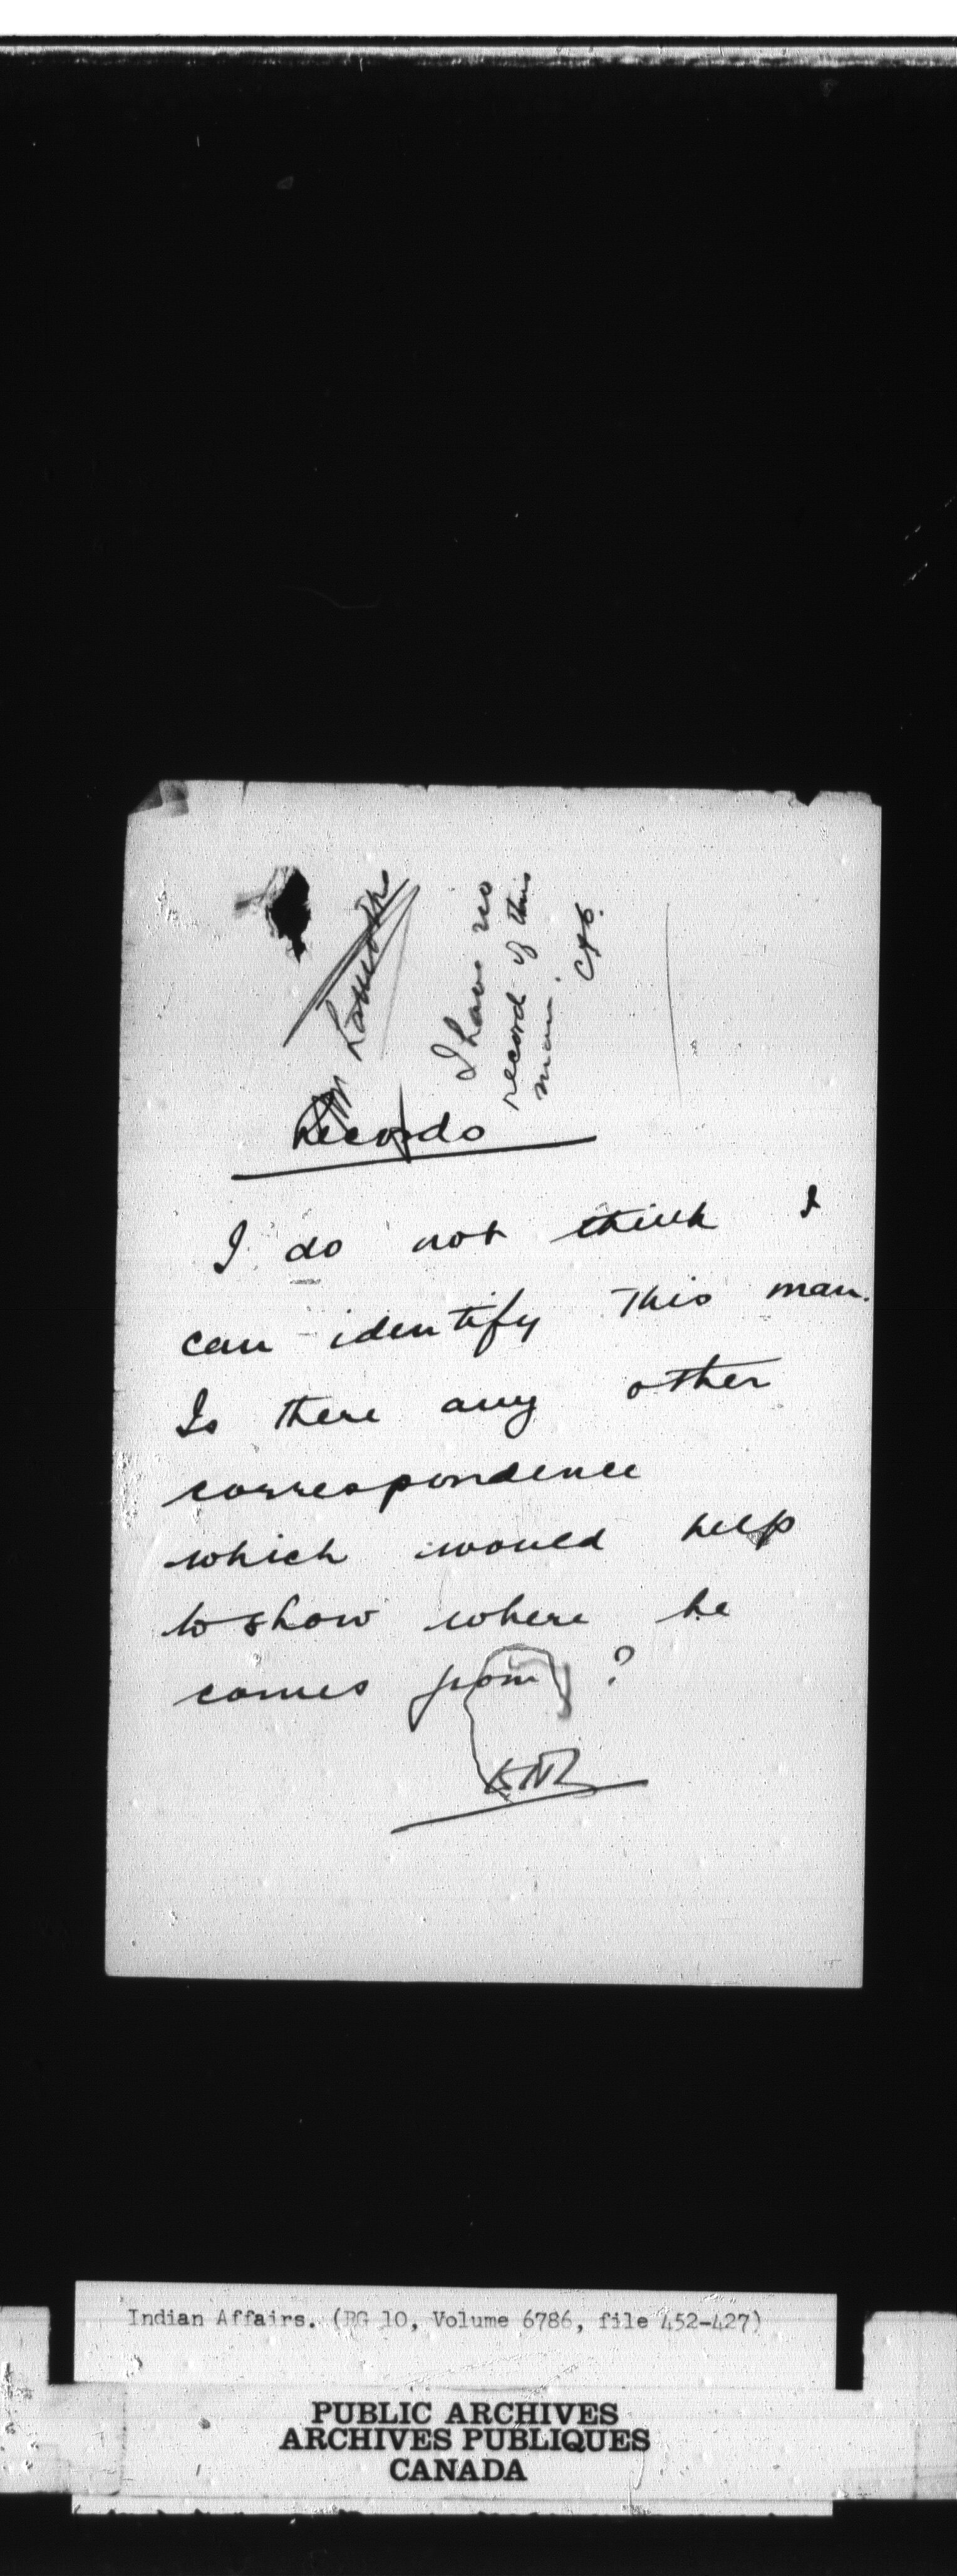 I have no
record of this
man.
Records
I do not think I
can identify this man.
Is there any other
correspondence
which would help
to show where he
comes from ?
Indian Affairs. (RG 10, Volume 6786, file 452-427)
PUBLIC ARCHIVES
ARCHIVES PUBLIQUES
CANADA